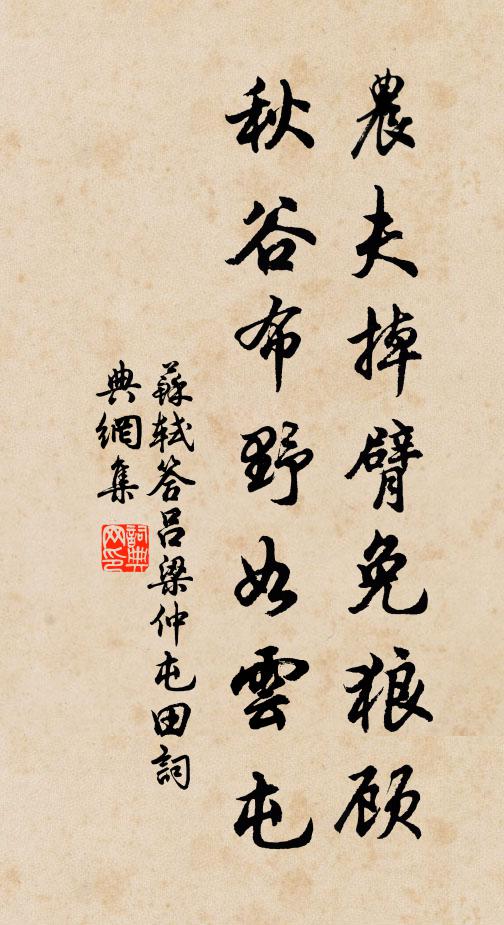 農夫掉臂免狼顾
秋谷布野如雲屯
蘇軾答呂梁仲屯田詞
典網集
詞典
网印